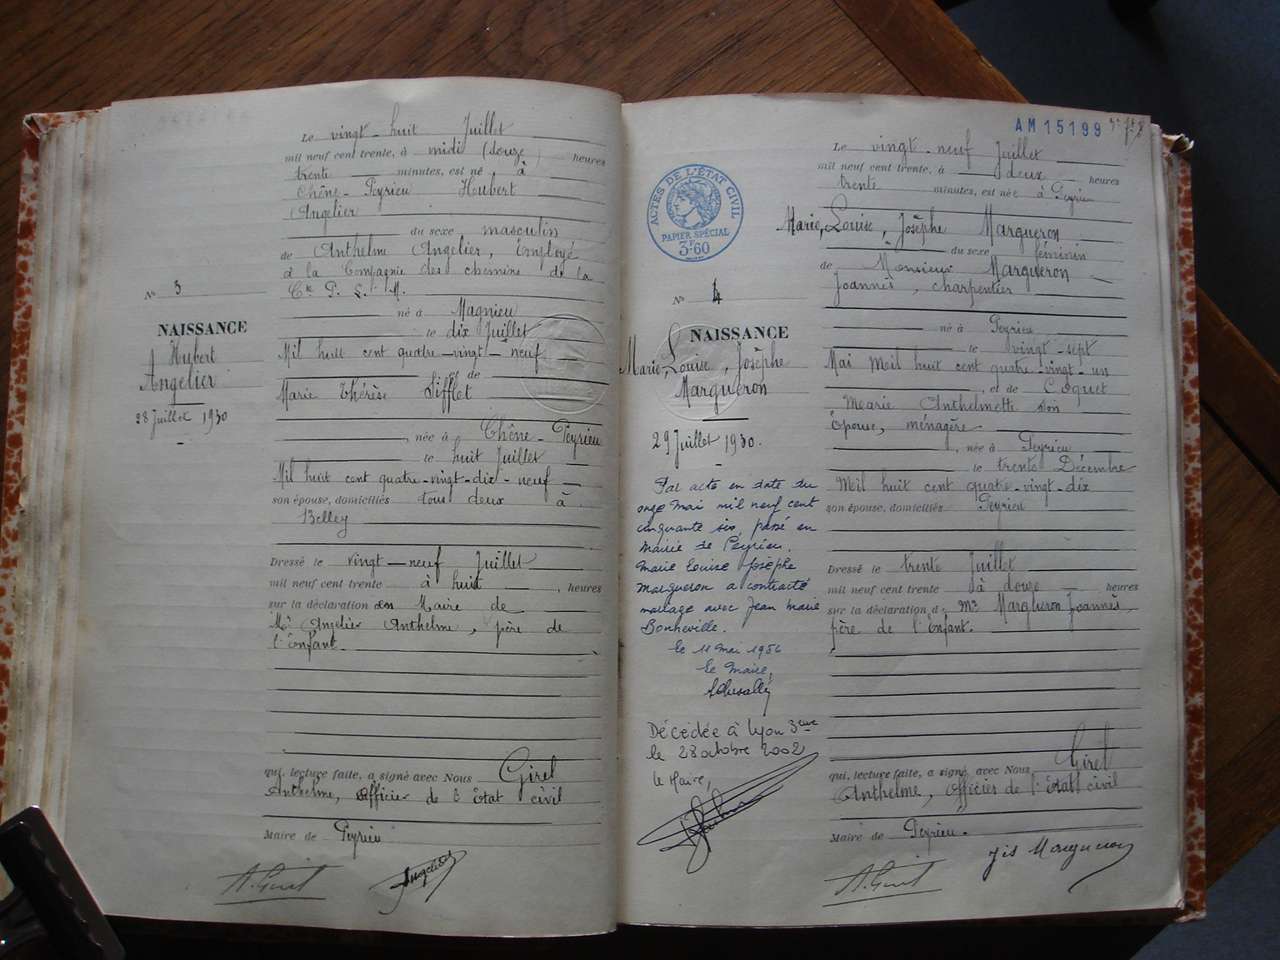 Le vingt-huit Juillet
mil neuf cent trente, à midi (douze) heures
trente minutes, est né à
Chêne-Peyrieu Hubert
Angelier
du sexe masculin
de Anthelme Angelier, Employé
à la Compagnie des chemins de la
Cie P. L. M.
né à Magnieu
le dix Juillet
Mil huit cent quatre-vingt-neuf
et de
Marie Thérèse Sifflet
, née à Chêne-Peyrieu
le huit Juillet
Mil huit cent quatre-vingt-dix-neuf
son épouse, domiciliés tous deux à
Belley
Dressé le vingt-neuf Juillet
mil neuf cent trente à huit , heures
sur la déclaration en Mairie de
Mr Angelier Anthelme, père de
l'Enfant.
qui, lecture faite, a signé avec Nous Girel
Anthelme, Officier de l'Etat civil
Maire de Peyrieu
A. Girel
Angelier
No 3
NAISSANCE
Hubert
Angelier
28 Juillet 1930
AM 15199
ACTES DE L'ÉTAT CIVIL
PAPIER SPÉCIAL
3F60
No 4
NAISSANCE
Marie, Louise, Josèphe
Margueron
29 Juillet 1930.
Par acte en date du
onze mai mil neuf cent
cinquante six, passé en
Mairie de Peyrieu.
Marie Louise Josèphe
Margueron a contracté
mariage avec Jean Marie
Bonneville.
Le 11 Mai 1956
Le Maire,
Décédée à Lyon 3eme
le 28 octobre 2002
Le Maire,
Le vingt-neuf Juillet
mil neuf cent trente, à deux heures
trente minutes, est née à Peyrieu
Marie, Louise, Josèphe Margueron
du sexe féminin
de Monsieur Margueron
Joannès, charpentier
né à Peyrieu
le vingt-sept
Mai Mil huit cent quatre-vingt-un
, et de Coquet
Marie Anthelmette son
Epouse, ménagère
, née à Peyrieu
le trente Décembre
Mil huit cent quatre-vingt-dix
son épouse, domiciliés Peyrieu
Dressé le trente Juillet
mil neuf cent trente à douze , heures
sur la déclaration de Mr Margueron Joannès,
père de l'Enfant.
qui, lecture faite, a signé avec Nous Girel
Anthelme, Officier de l'Etat civil
Maire de Peyrieu.
A. Girel
Jis Margueron